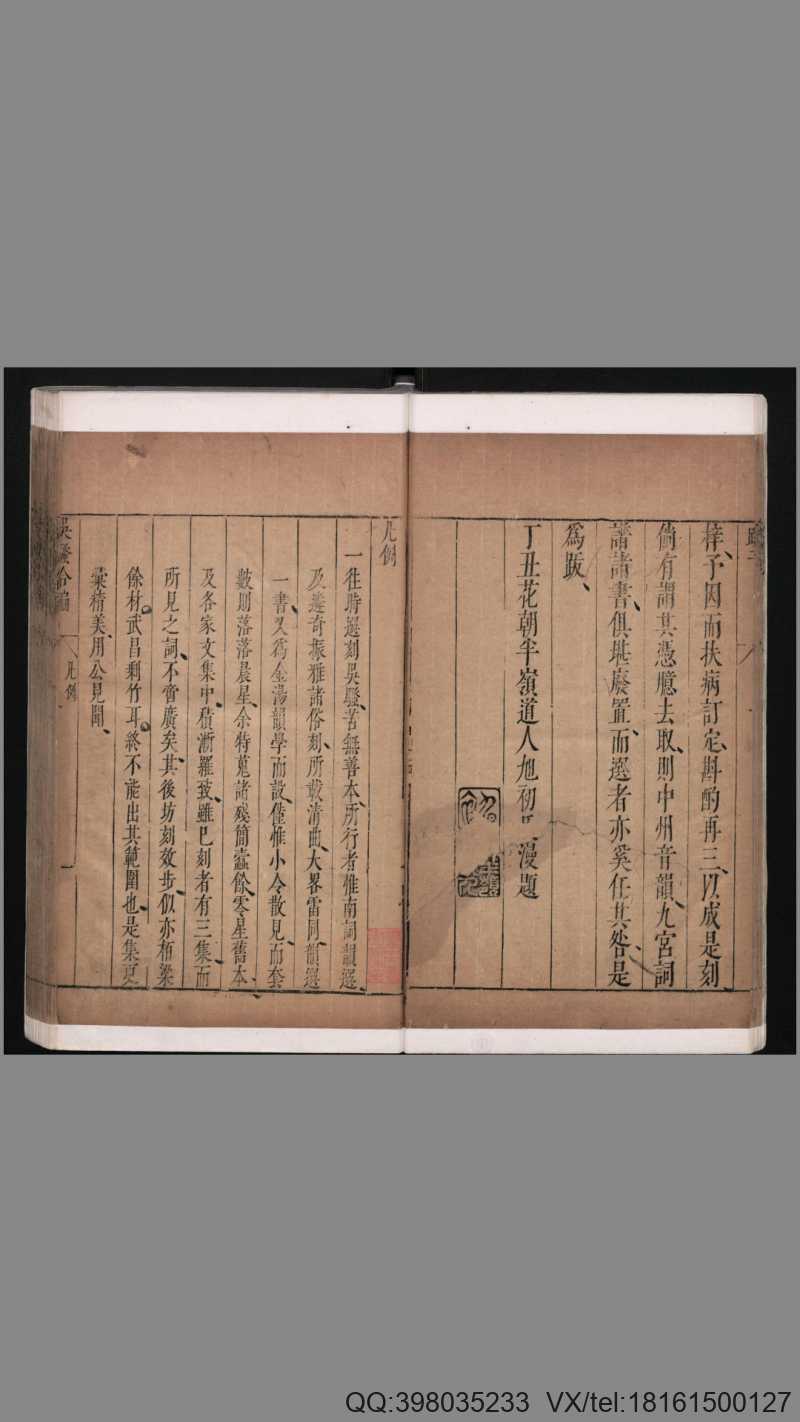 梓、予因而扶病訂定、斟酌再三、以成是刻
倘有謂其憑臆去取、則中州音韻、九宮詞
譜諸書、俱堪廢置、而選者亦奚任其咎、是
為跋、
丁丑花朝半嶺道人旭初漫題
凡例
一往時選刻吳騷、苦無善本、所行者惟南詞韻選、
及遴奇振雅諸俗刻、所載清曲、大畧雷同、韻選
一書、又為金湯韻學而設、僅惟小令散見、而套
數則落落晨星、余特蒐諸殘簡蠹餘、零星舊本、
及各家文集中、積漸羅致、雖已刻者有三集、而
所見之詞、不啻廣矣、其後坊刻效步、似亦栢梁
餘材。武昌剩竹耳。終不能出其範圍也、是集更
彙精美、用公見聞、
吳騷合編 凡例 一
QQ:398035233 VX/tel:18161500127